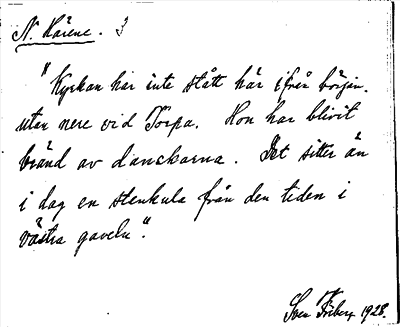 N. Kårene. 3
"Kyrkan har inte stått här ifrån början.
utan nere vid Torpa. Hon har blivit
bränd av danskarna. Det sitter än
i dag en stenkula från den tiden i
västra gaveln".
Sven 1928.